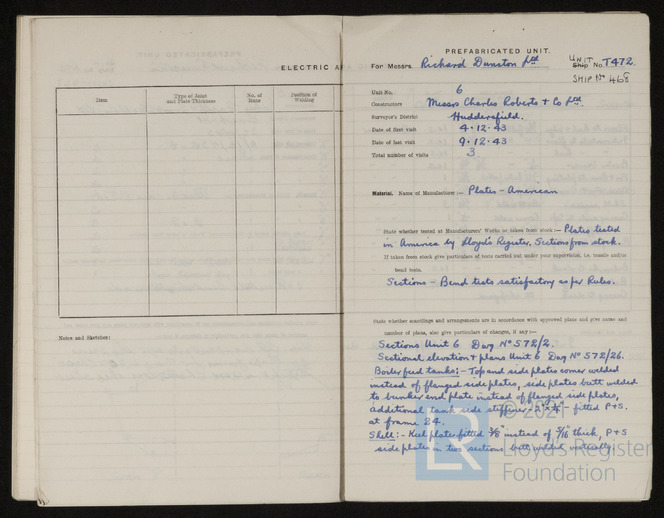 ELECTRIC
Item
Type of Joint and Plate Thickness
No. of Runs
Position of Welding
Notes and Sketches:
PREFABRICATED UNIT.
For Messrs. Richard Dunston Ltd
UNIT
Ship No. T472.
SHIP No 468
Unit No. 6
Constructors Messrs Charles Roberts & Co Ltd.
Surveyor's District Huddersfield.
Date of first visit 4.12.43
Date of last visit 9.12.43
Total number of visits 3
Material. Name of Manufacturer :— Plates - American
State whether tested at Manufacturers' Works or taken from stock :— Plates tested
in America by Lloyd's Register. Sections from stock.
If taken from stock give particulars of tests carried out under your supervision, i.e. tensile and/or
bend tests.
Sections - Bend tests satisfactory as per Rules.
State whether scantlings and arrangements are in accordance with approved plans and give name and
number of plans, also give particulars of changes, if any :—
Sections Unit 6 Dwg No 572/2.
Sectional elevation & plans Unit 6 Dwg No 572/26.
Boiler feed tanks:- Top and side plates corner welded
instead of flanged side plates, side plates butt welded
to bunker end plate instead of flanged side plates,
additional tank side stiffener - fitted P+S.
at frame 24.
Shell:- Keel plate fitted 3/8" instead of 7/16" thick, P+S
side plates in two sections butt welded vertically.
© 2021
LR
Lloyd's Register
Foundation